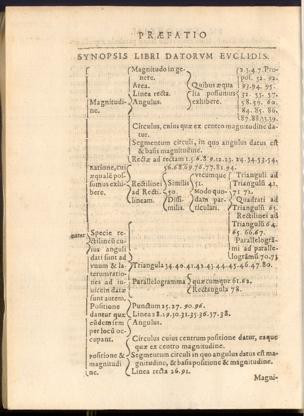 PRÆFATIO
SYNOPSIS LIBRI DATORVM EVCLIDIS.
Magnitudo in ge-
nere.
Area.
Linea recta.
Angulus.
Quibus æqua
lia possumus
exhibere.
2.3.4.7. Pro-
pos. 52. 92.
93.94. 95.
32. 33. 37.
58.59. 60.
84. 85. 86.
87.88.33.39.
Magnitudi-
ne.
Circulus, cuius quæ ex centro magnitudine da-
tur.
Segmentum circuli, in quo angulus datus est
& basis magnitudine.
Rectæ ad rectam 1.5.6.8.9.12.23. 24.34.53.54.
56.68.69.76.77.81.94.
ratione, cui
æqualē pos-
sumus exhi-
bere.
Rectilinei
ad Recti-
lineam.
Similis
50.
Dissi-
milis.
vtcumque
51.
Modo quo-
dam par-
ticulari.
Trianguli ad
Triangulū 41.
71 72.
Quadrati ad
Triangulū 65.
Rectilinei ad
Triangulū 64.
65. 66.67.
Parallelogrā-
mi ad paralle-
logrāmū 70.73
datur
Specie re-
ctilineū cu-
ius anguli
dati sunt ad
vnum & la-
terum ratio-
nes ad in-
uicem datæ
sunt autem.
Triangula 34.40.41.42.43.44.45.46.47.80.
Parallelogramma
quæcumque 61.62.
Rectangula 78.
Positione
dantur quæ
eūdem sem
per locū oc-
cupant.
Punctum 25.27. 90.96.
Linea 28.29.30.31.35.36.37.38.
Angulus.
positione &
magnitudi
ne.
Circulus cuius centrum positione datur, eaque
quæ ex centro magnitudine.
Segmentum circuli in quo angulus datus est ma-
gnitudine, & basis positione & magnitudine.
Linea recta 26.91.
Magni-